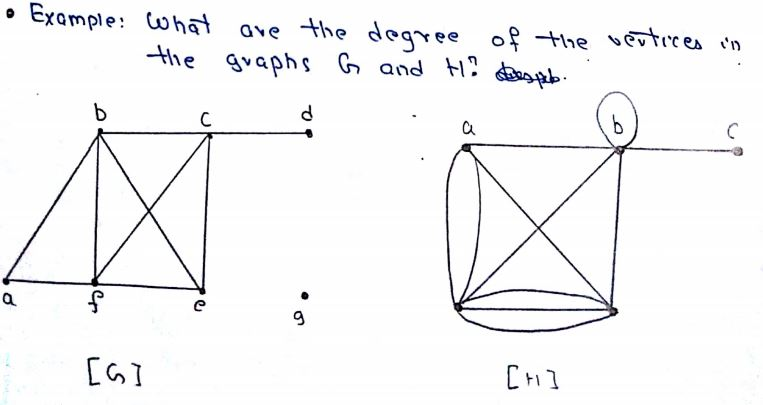 • Example: What are the degree of the vertices in
the graphs G and H?
b c d
a b c
a f e g
[G] [H]